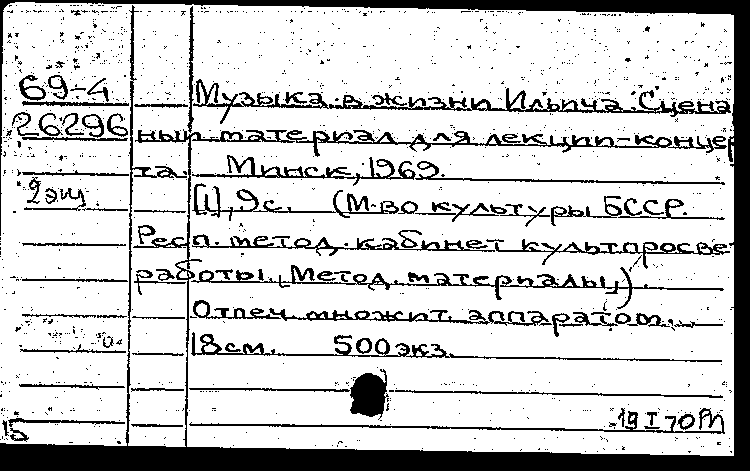 69-4
26296
2 экз.
Музыка в жизни Ильича. Сцена
ный материал для лекции-концер
та. Минск, 1969.
[1], 9с. (М-во культуры БССР.
Респ. метод. кабинет культпросвет
работы. [Метод. материалы])
Отпеч. множит. аппаратом.
18см. 500экз.
19 I 70
15